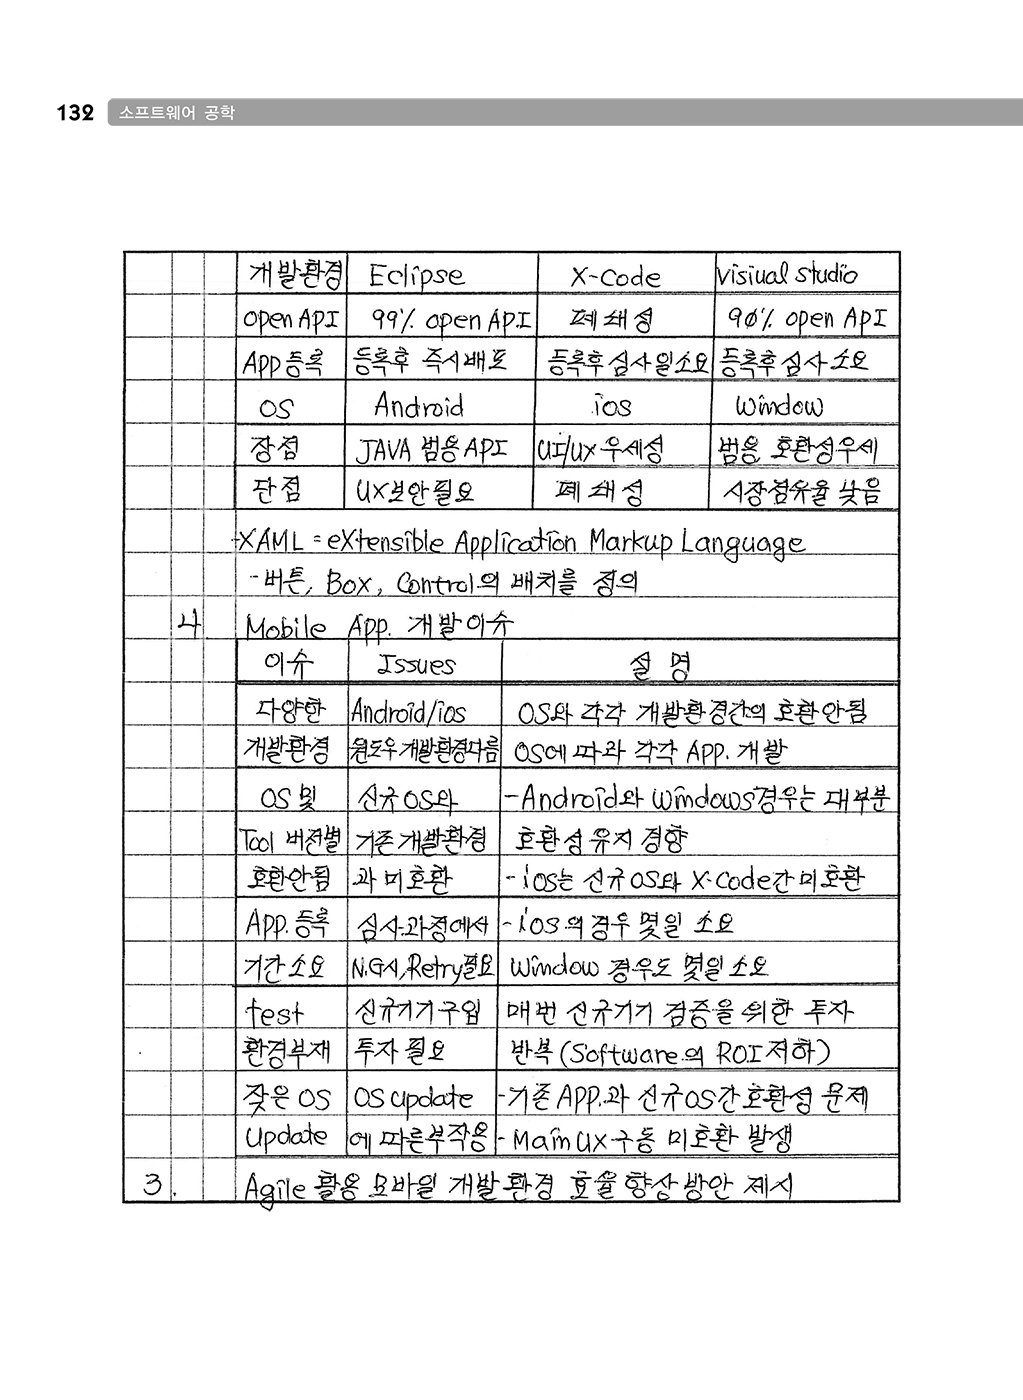 132 소프트웨어 공학
개발환경 Eclipse X-Code Visiual studio
open API 99% open API 폐쇄성 90% open API
App등록 등록후 즉시배포 등록후심사일소요 등록후심사소요
OS Android ios window
장점 JAVA 범용API UI/UX 우세성 범용, 호환성우세
단점 UX보안필요 폐쇄성 시장점유율 낮음
-XAML = eXtensible Application Markup Language
-버튼, Box, Control의 배치를 정의
4 Mobile App. 개발이슈
이슈 Issues 설명
다양한 Android/ios OS와 각각 개발환경간의 호환안됨
개발환경 윈도우개발환경다름 OS에 따라 각각 APP. 개발
OS및 신규OS와 -Android와 Windows경우는 대부분
Tool 버전별 기존개발환경 호환성유지 경향
호환안됨 과 미호환 -ios는 신규OS와 X-Code간미호환
App.등록 심사과정에서 -ios의 경우 몇일 소요
기간소요 N.G시,Retry필요 window 경우도 몇일소요
test 신규기기구입 매번 신규기기 검증을 위한 투자
환경부재 투자필요 반복(Software의 ROI저하)
잦은OS OS update -기존APP.과 신규OS간호환성 문제
update 에 따른부작용 -Main UX구동 미호환 발생
3. Agile 활용 모바일 개발환경 효율향상방안 제시